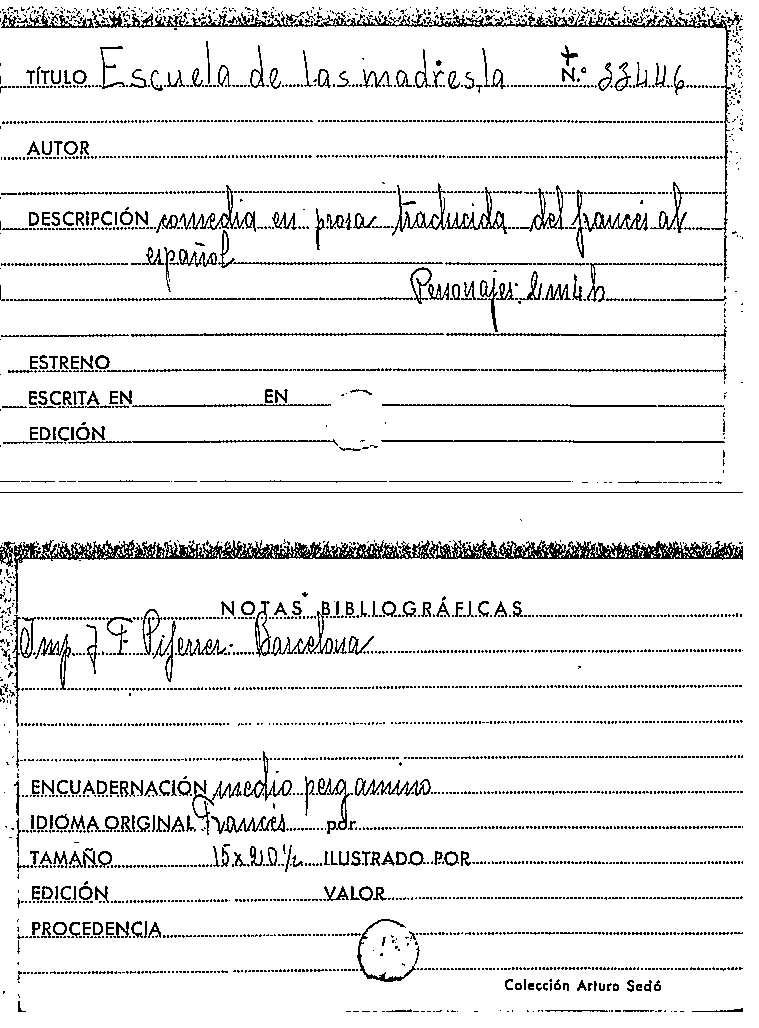 TÍTULO Escuela de las madres, la N.º 33446
AUTOR
DESCRIPCIÓN comedia en prosa traducida del francés al
español
Personajes: 2m4h
ESTRENO
ESCRITA EN EN
EDICIÓN
NOTAS BIBLIOGRÁFICAS
Imp J. F. Piferrer. Barcelona
ENCUADERNACIÓN medio pergamino
IDIOMA ORIGINAL Francés por
TAMAÑO 15x20½ ILUSTRADO POR
EDICIÓN VALOR
PROCEDENCIA
Colección Arturo Sedó